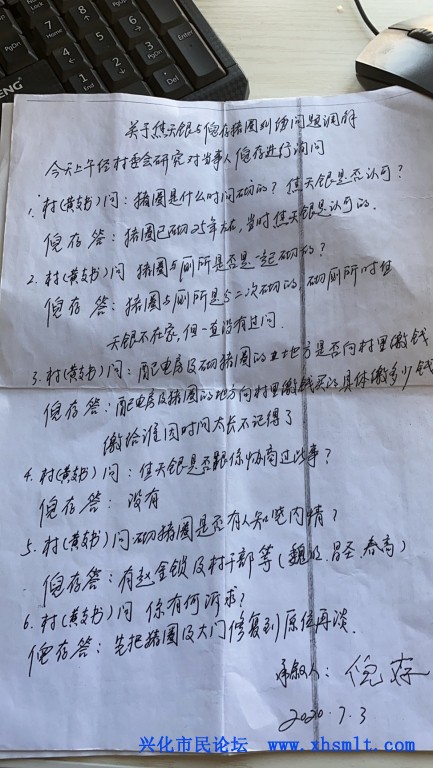 关于焦天银与倪存猪圈纠纷问题调解
今天上午经村委会研究对当事人倪存进行询问
1. 村(黄支书)问:猪圈是什么时间砌的?焦天银是否认可?
倪存答:猪圈已砌25年左右,当时焦天银是认可的.
2. 村(黄支书)问 猪圈与厕所是否是一起砌的?
倪存答:猪圈与厕所是分二次砌的,砌厕所时焦
天银不在家,但一直没有过问.
3. 村(黄支书)问:配电房及砌猪圈的土地方是否向村里缴钱
倪存答:配电房及猪圈的地方向村里缴钱买的,具体缴多少钱
缴给谁因时间太长不记得了
4. 村(黄支书)问:焦天银是否跟你协商过此事?
倪存答:没有
5. 村(黄支书)问 砌猪圈是否有人知晓内情?
倪存答:有赵金锁及村干部等(魏 昌圣.春高)
6. 村(黄支书)问 你有何诉求?
倪存答:先把猪圈及大门修复到原位再谈.
承叙人:倪存
2020.7.3
兴化市民论坛 www.xhsmlt.com